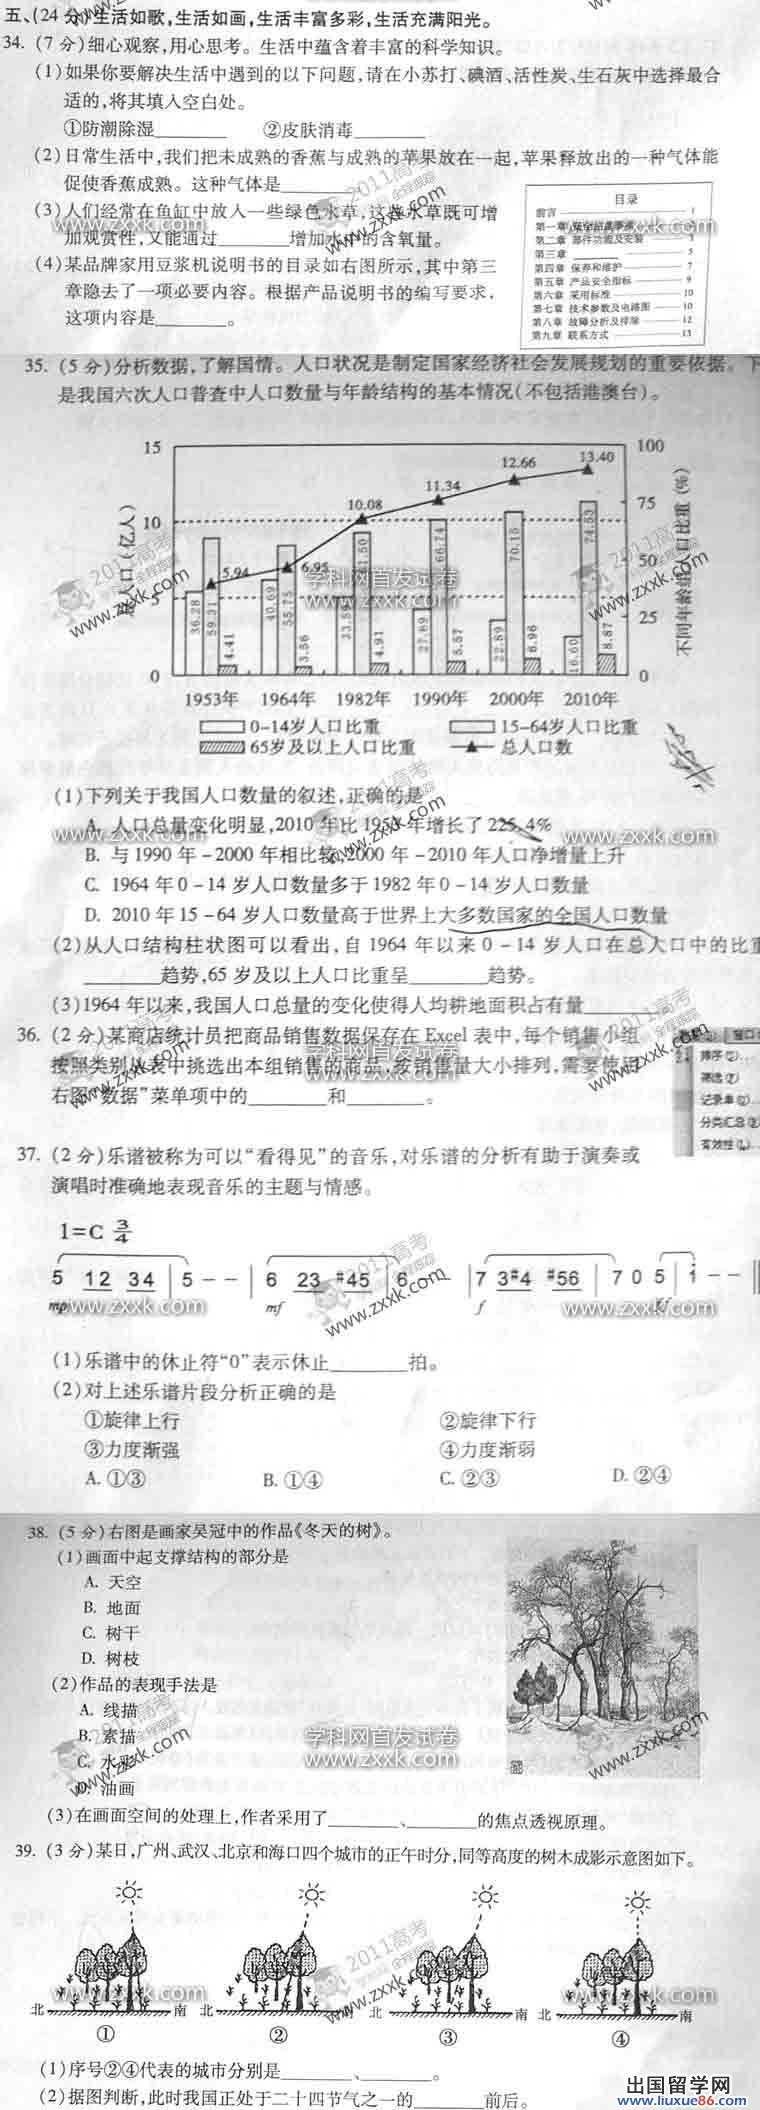 五、(24 分)生活如歌,生活如画,生活丰富多彩,生活充满阳光。
34. (7 分)细心观察,用心思考。生活中蕴含着丰富的科学知识。
(1)如果你要解决生活中遇到的以下问题,请在小苏打、碘酒、活性炭、生石灰中选择最合
适的,将其填入空白处。
①防潮除湿________ ②皮肤消毒________
(2)日常生活中,我们把未成熟的香蕉与成熟的苹果放在一起,苹果释放出的一种气体能
促使香蕉成熟。这种气体是________
(3)人们经常在鱼缸中放入一些绿色水草,这些水草既可增
加观赏性,又能通过________增加水中的含氧量。
(4)某品牌家用豆浆机说明书的目录如右图所示,其中第三
章隐去了一项必要内容。根据产品说明书的编写要求,
这项内容是________。
目录
前言 1
第一章
第二章 部件功能及安装 3
第三章 ________ 5
第四章 保养和维护 7
第五章 产品安全指标 9
第六章 采用标准 10
第七章 技术参数及电路图 10
第八章 故障分析及排除 12
第九章 联系方式 13
35. (5 分)分析数据,了解国情。人口状况是制定国家经济社会发展规划的重要依据。下
是我国六次人口普查中人口数量与年龄结构的基本情况(不包括港澳台)。
总人口(亿人)
15
10
5
0
不同年龄组人口比重(%)
100
75
50
25
0
5.94
6.95
10.08
11.34
12.66
13.40
36.28
59.31
4.41
40.69
55.75
3.56
4.91
27.69
66.74
5.57
22.89
70.15
6.96
16.60
74.53
8.87
1953年 1964年 1982年 1990年 2000年 2010年
0-14岁人口比重 15-64岁人口比重
65岁及以上人口比重 总人口数
(1)下列关于我国人口数量的叙述,正确的是
A. 人口总量变化明显,2010 年比 1953 年增长了 225.4%
B. 与 1990 年-2000 年相比较,2000 年-2010 年人口净增量上升
C. 1964 年 0-14 岁人口数量多于 1982 年 0-14 岁人口数量
D. 2010 年 15-64 岁人口数量高于世界上大多数国家的全国人口数量
(2)从人口结构柱状图可以看出,自 1964 年以来 0-14 岁人口在总人口中的比重
________趋势,65 岁及以上人口比重呈________趋势。
(3)1964 年以来,我国人口总量的变化使得人均耕地面积占有量________
36. (2 分)某商店统计员把商品销售数据保存在 Excel 表中,每个销售小组
按照类别从表中挑选出本组销售的商品,按销售量大小排列,需要使用
右图“数据”菜单项中的________和________。
窗口
排序(S)...
筛选(F)
记录单(O)...
分类汇总(B)
有效性(L)...
37. (2 分)乐谱被称为可以“看得见”的音乐,对乐谱的分析有助于演奏或
演唱时准确地表现音乐的主题与情感。
1=C 3/4
5 12 34 | 5 - - | 6 23 #45 | 6 - - | 7 3#4 #56 | 7 0 5 | 1 - - ‖
mp mf f ff
(1)乐谱中的休止符“0”表示休止________拍。
(2)对上述乐谱片段分析正确的是
①旋律上行 ②旋律下行
③力度渐强 ④力度渐弱
A. ①③ B. ①④ C. ②③ D. ②④
38. (5 分)右图是画家吴冠中的作品《冬天的树》。
(1)画面中起支撑结构的部分是
A. 天空
B. 地面
C. 树干
D. 树枝
(2)作品的表现手法是
A. 线描
B. 素描
C. 水彩
D. 油画
(3)在画面空间的处理上,作者采用了________、________的焦点透视原理。
39. (3 分)某日,广州、武汉、北京和海口四个城市的正午时分,同等高度的树木成影示意图如下。
北 南 北 南 北 南 北 南
① ② ③ ④
(1)序号②④代表的城市分别是________、________。
(2)据图判断,此时我国正处于二十四节气之一的________前后。
2011高考
全程跟踪
学科网首发试卷
www.zxxk.com
出国留学网
www.liuxue86.com